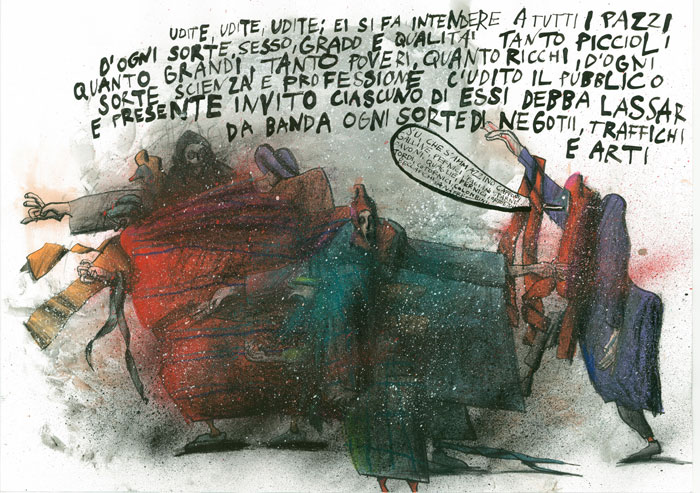 UDITE, UDITE, UDITE; EI SI FA INTENDERE A TUTTI I PAZZI
D'OGNI SORTE, SESSO, GRADO E QUALITA' TANTO PICCIOLI
QUANTO GRANDI, TANTO POVERI, QUANTO RICCHI, D'OGNI
SORTE SCIENZA E PROFESSIONE C'UDITO IL PUBBLICO
E PRESENTE INVITO CIASCUNO DI ESSI DEBBA LASSAR
DA BANDA OGNI SORTE DI NEGOTII, TRAFFICHI
E ARTI
SU, CHE S'AMMAZZINO
GALLINE
PAVONI, QUAGLIE
TORDI, COTORNICI, COLOMBINI